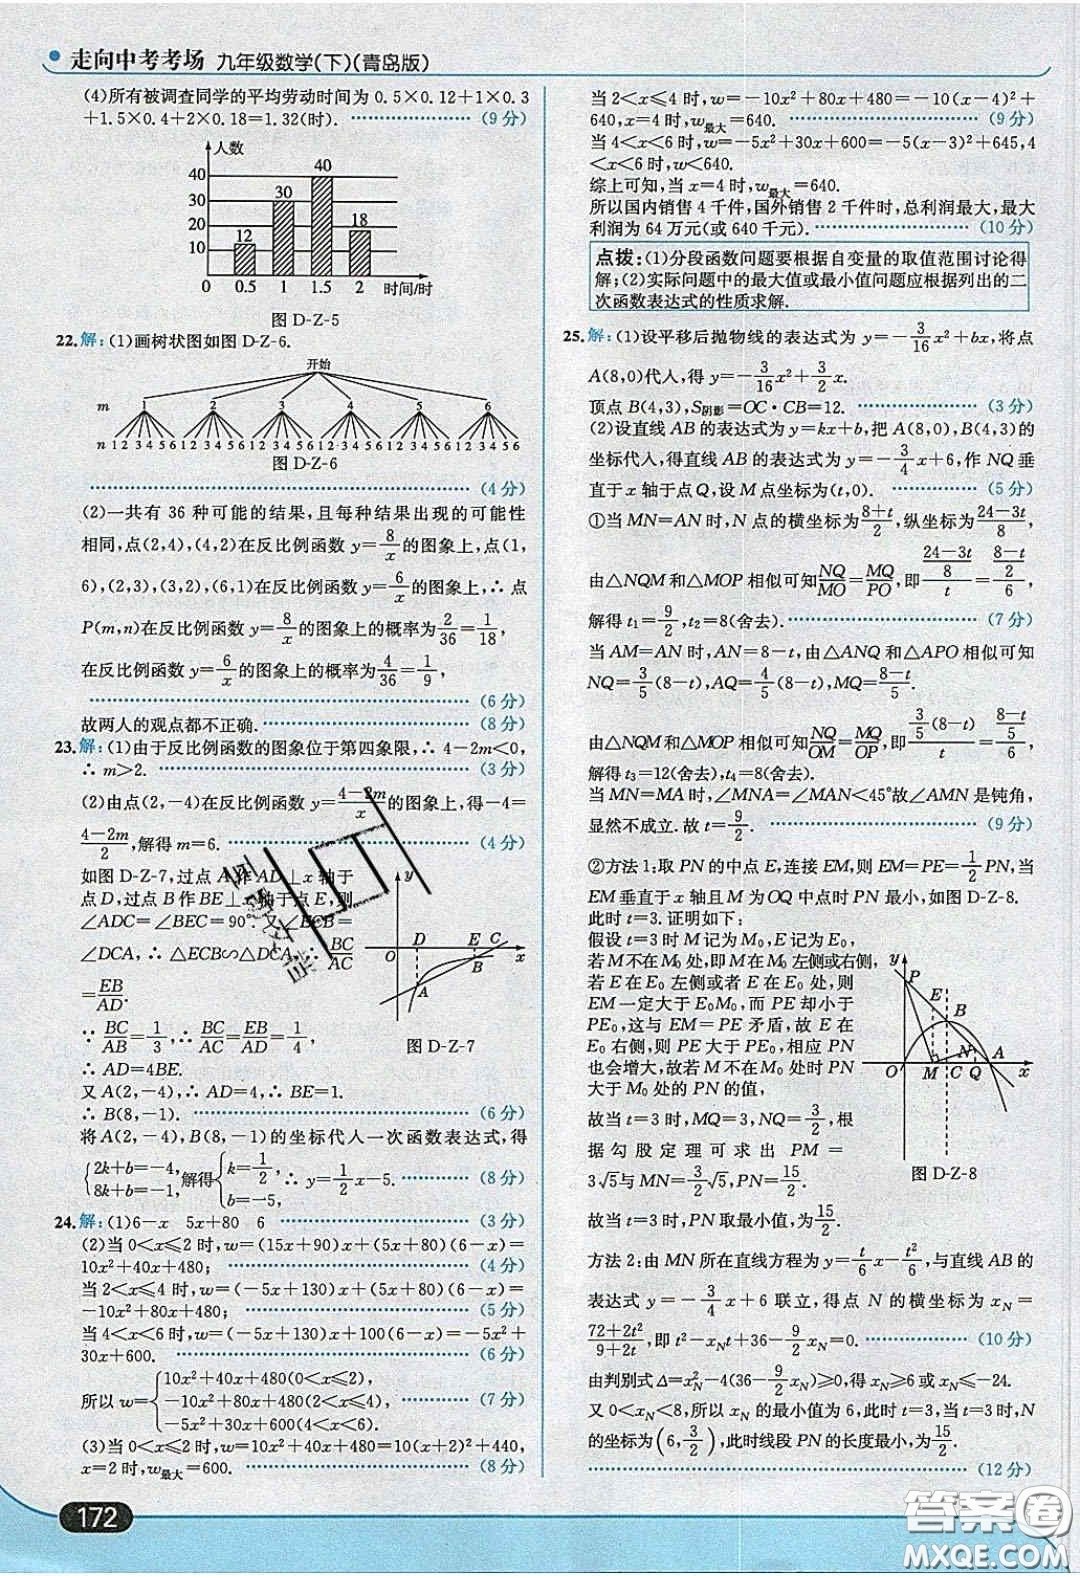 走向中考考场 九年级数学(下)(青岛版)
(4)所有被调查同学的平均劳动时间为 0.5×0.12+1×0.3
+1.5×0.4+2×0.18=1.32(时). (9分)
人数
40
30
20
10
12
30
40
18
0 0.5 1 1.5 2 时间/时
图 D-Z-5
22.解:(1)画树状图如图 D-Z-6.
开始
m 1 2 3 4 5 6
n 1 2 3 4 5 6 1 2 3 4 5 6 1 2 3 4 5 6 1 2 3 4 5 6 1 2 3 4 5 6 1 2 3 4 5 6
图 D-Z-6
(4分)
(2)一共有 36 种可能的结果,且每种结果出现的可能性
相同,点(2,4),(4,2)在反比例函数 y=8/x 的图象上,点(1,
6),(2,3),(3,2),(6,1)在反比例函数 y=6/x 的图象上,∴点
P(m,n)在反比例函数 y=8/x 的图象上的概率为 2/36=1/18,
在反比例函数 y=6/x 的图象上的概率为 4/36=1/9,
(6分)
故两人的观点都不正确. (8分)
23.解:(1)由于反比例函数的图象位于第四象限,∴4-2m<0,
∴m>2. (3分)
(2)由点(2,-4)在反比例函数 y=(4-2m)/x 的图象上,得-4=
(4-2m)/2,解得 m=6. (4分)
如图 D-Z-7,过点 A 作 AD⊥x 轴于
点 D,过点 B 作 BE⊥x 轴于点 E,则
∠ADC=∠BEC=90°.又∠ECB=
∠DCA,∴△ECB∽△DCA,∴BC/AC
=EB/AD.
∵BC/AB=1/3,∴BC/AC=EB/AD=1/4,
∴AD=4BE.
又 A(2,-4),∴AD=4,∴BE=1.
∴B(8,-1). (6分)
y
O D E C x
B
A
图 D-Z-7
将 A(2,-4),B(8,-1)的坐标代人一次函数表达式,得
{2k+b=-4, 8k+b=-1, 解得{k=1/2, b=-5, ∴y=1/2x-5. (8分)
24.解:(1)6-x 5x+80 6 (3分)
(2)当 0<x≤2 时,w=(15x+90)x+(5x+80)(6-x)=
10x²+40x+480; (4分)
当 2<x≤4 时,w=(-5x+130)x+(5x+80)(6-x)=
-10x²+80x+480; (5分)
当 4<x<6 时,w=(-5x+130)x+(6-x)=-5x²+
30x+600. (6分)
所以 w={10x²+40x+480(0<x≤2),
-10x²+80x+480(2<x≤4), (7分)
-5x²+30x+600(4<x<6).
(3)当 0<x≤2 时,w=10x²+40x+480=10(x+2)²+440,
x=2 时,w最大=600. (8分)
当 2<x≤4 时,w=-10x²+80x+480=-10(x-4)²+
640,x=4 时,w最大=640. (9分)
当 4<x<6 时,w=-5x²+30x+600=-5(x-3)²+645,4
<x<6 时,w<640.
综上可知,当 x=4 时,w最大=640.
所以国内销售 4 千件,国外销售 2 千件时,总利润最大,最大
利润为 64 万元(或 640 千元). (10分)
点拨:(1)分段函数问题要根据自变量的取值范围讨论得
解;(2)实际问题中的最大值或最小值问题应根据列出的二
次函数表达式的性质求解.
25.解:(1)设平移后抛物线的表达式为 y=-3/16x²+bx,将点
A(8,0)代人,得 y=-3/16x²+3/2x.
顶点 B(4,3),S阴影=OC·CB=12. (3分)
(2)设直线 AB 的表达式为 y=kx+b,把 A(8,0),B(4,3)的
坐标代人,得直线 AB 的表达式为 y=-3/4x+6,作 NQ 垂
直于 x 轴于点 Q,设 M 点坐标为(t,0). (5分)
①当 MN=AN 时,N 点的横坐标为(8+t)/2,纵坐标为(24-3t)/8,
由△NQM 和△MOP 相似可知 NQ/MO=MQ/PO,即((24-3t)/8)/t=((8-t)/2)/6,
解得 t₁=9/2,t₂=8(舍去). (7分)
当 AM=AN 时,AN=8-t,由△ANQ 和△APO 相似可知
NQ=3/5(8-t),AQ=4/5(8-t),MQ=(8-t)/5.
由△NQM 和△MOP 相似可知 NQ/OM=MQ/OP,即(3/5(8-t))/t=((8-t)/5)/6,
解得 t₃=12(舍去),t₄=8(舍去).
当 MN=MA 时,∠MNA=∠MAN<45°故∠AMN 是钝角,
显然不成立.故 t=9/2. (9分)
②方法 1:取 PN 的中点 E,连接 EM,则 EM=PE=1/2PN,当
EM 垂直于 x 轴且 M 为 OQ 中点时 PN 最小,如图 D-Z-8.
此时 t=3.证明如下:
假设 t=3 时 M 记为 M₀,E 记为 E₀.
若 M 不在 M₀ 处,即 M 在 M₀ 左侧或右侧,
若 E 在 E₀ 左侧或者 E 在 E₀ 处,则
EM 一定大于 E₀M₀,而 PE 却小于
PE₀,这与 EM=PE 矛盾,故 E 在
E₀ 右侧,则 PE 大于 PE₀,相应 PN
也会增大,故若 M 不在 M₀ 处时 PN
大于 M₀ 处的 PN 的值,
故当 t=3 时,MQ=3,NQ=3/2,根
据勾股定理可求出 PM=
3√5与 MN=3/2√5,PN=15/2.
y
P
E
B
N
A
O M C Q x
图 D-Z-8
故当 t=3 时,PN 取最小值,为 15/2.
方法 2:由 MN 所在直线方程为 y=t/6x-t²/6,与直线 AB 的
表达式 y=-3/4x+6 联立,得点 N 的横坐标为 xN=
(72+2t²)/(9+2t),即 t²-xNt+36-9/2xN=0. (10分)
由判别式 Δ=x²N-4(36-9/2xN)≥0,得 xN≥6 或 xN≤-24.
又 0<xN<8,所以 xN 的最小值为 6,此时 t=3,当 t=3 时,N
的坐标为(6,3/2),此时线段 PN 的长度最小,为15/2.
(12分)
172
答案圈
MXQE.COM